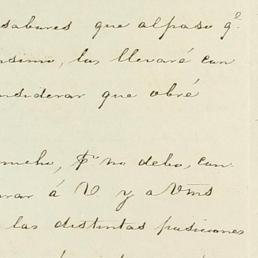 sabores que al paso q.º
nsimo, las llevaré con
nsiderar que obré
mucho, pr no debo, con
rar á V y a Vms
las distintas posiciones